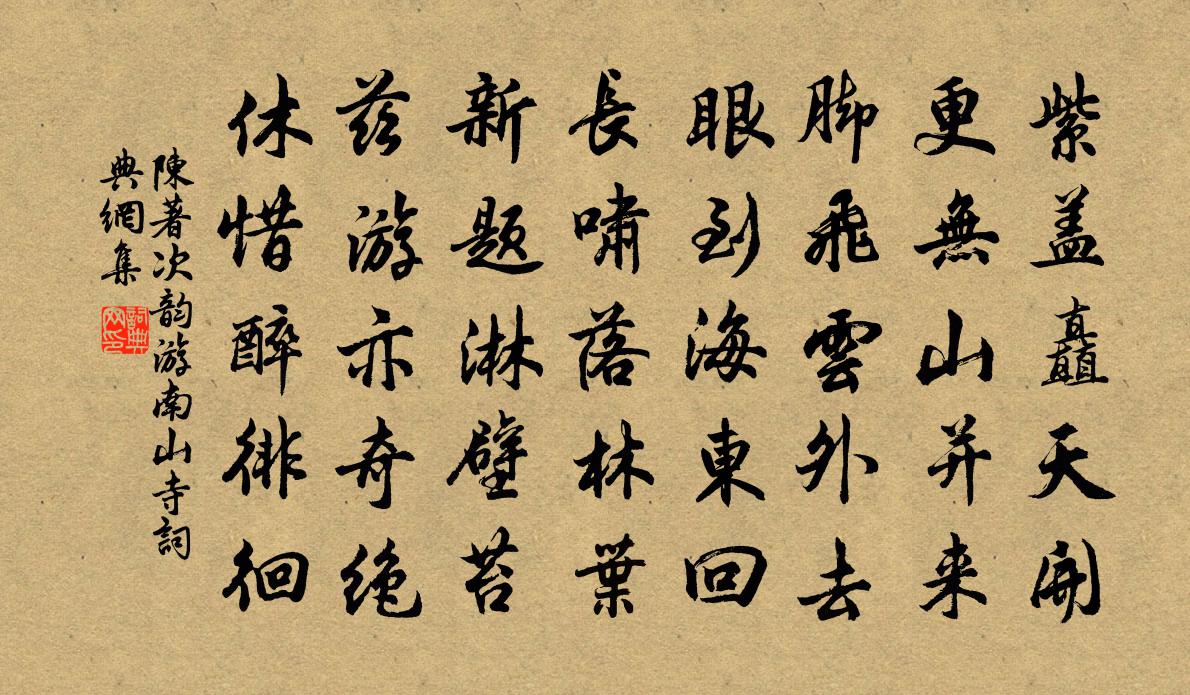 紫盖矗天開
更無山并来
脚飛雲外去
眼到海東回
長嘯落林葉
新題淋壁苔
兹游亦奇絶
休惜醉徘徊
陳著次韵游南山寺詞
典網集
詞典
网印